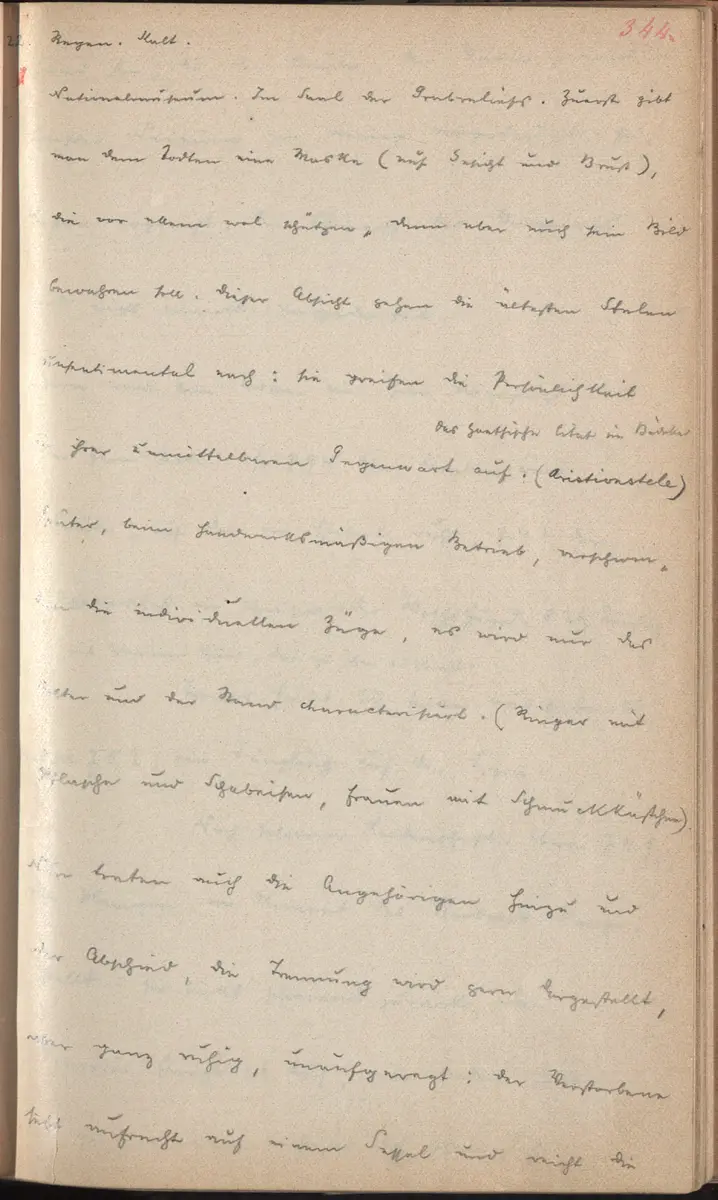 344.
22. Regen. Kalt.
Nationalmuseum. Im Saal der Grabreliefs. Zuerst gibt
man dem Todten eine Maske (auf Gesicht und Brust),
die vor allem wol schützen, dann aber auch sein Bild
bewahren soll. Dieser Absicht gehen die ältesten Stelen
unsentimental nach: sie greifen die Persönlichkeit
das Goethische Citat im Bädeker
in ihrer unmittelbaren Gegenwart auf. (Aristionstele)
Später, beim handwerksmäßigen Betrieb, verschwin-
den die individuellen Züge, es wird nur das
Alter und der Stand characterisirt. (Ringer mit
Flasche und Schabeisen, Frauen mit Schmuckkästchen)
treten auch die Angehörigen hinzu und
der Abschied, die Trennung wird gern dargestellt,
aber ganz ruhig, unaufgeregt: der Verstorbene
sitzt aufrecht auf einem Sessel und reicht die